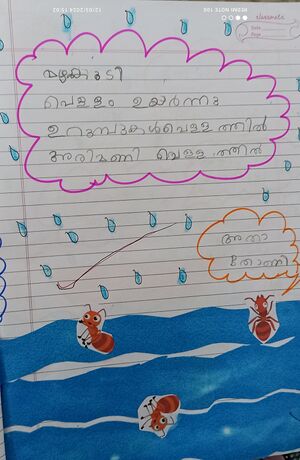 12/05/2024 15:02
REDMI NOTE 10S
classmate
Date
Page
മഴക്കൂടി
വെള്ളം ഉയർന്നു
ഉറുമ്പുകൾ വെള്ളത്തിൽ
അരിമണി വെള്ളത്തിൽ
അതാ
തോണി